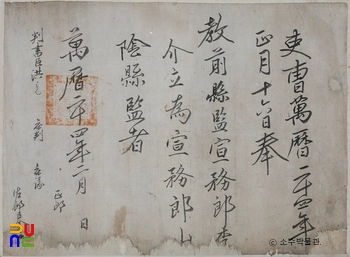 吏曹萬曆二十四年
正月十六日奉
教前縣監宣務郎李
介立為宣務郎山
陰縣監者
萬曆二十四年二月 日
判書臣洪 參判 參議 正郎 佐郎
ⓒ 소수박물관